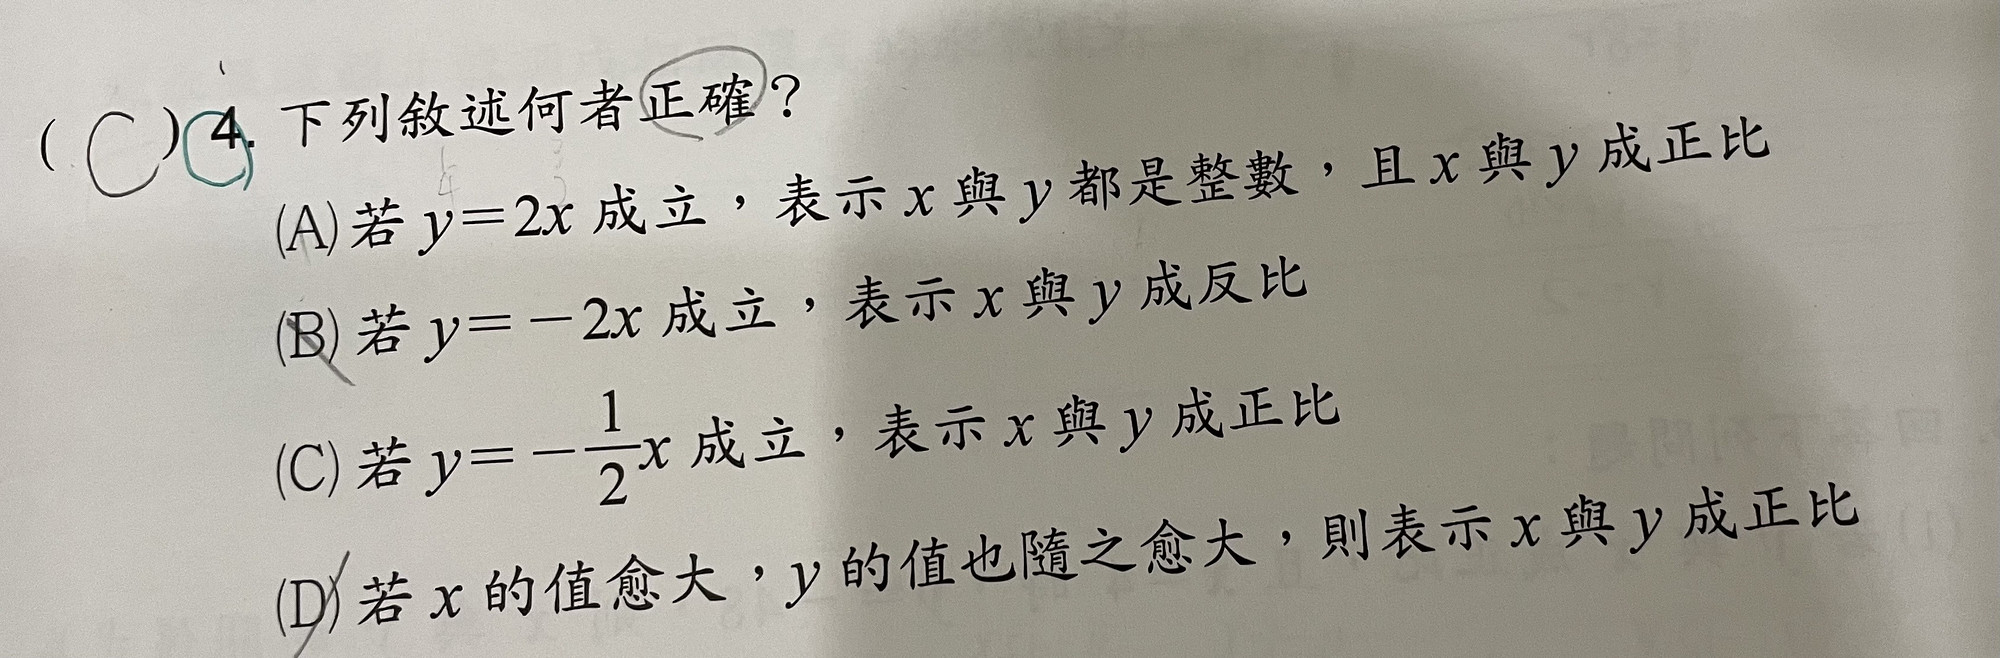 ( C ) 4. 下列敘述何者正確？
(A) 若 y=2x 成立，表示 x 與 y 都是整數，且 x 與 y 成正比
(B) 若 y=-2x 成立，表示 x 與 y 成反比
(C) 若 y=-1/2x 成立，表示 x 與 y 成正比
(D) 若 x 的值愈大，y 的值也隨之愈大，則表示 x 與 y 成正比